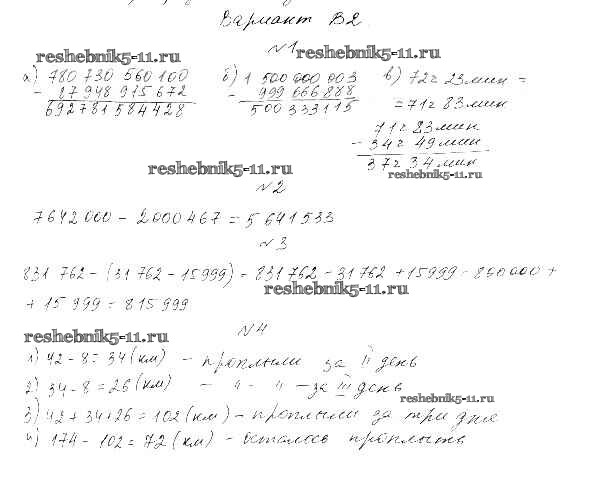 Вариант В2.
№1
reshebnik5-11.ru reshebnik5-11.ru
а) 780 730 560 100
- 87 948 915 672
692781584428
б) 1 500 000 003
- 999 666 888
500 333 115
в) 72 г 23 мин =
= 71 г 83 мин
71 г 83 мин
- 34 г 49 мин
37 г 34 мин
reshebnik5-11.ru
reshebnik5-11.ru
№2
7642000 - 2000467 = 5641533
№3
831 762 - (31 762 - 15999) = 831762 - 31762 + 15999 = 800000 +
+ 15 999 = 815 999
reshebnik5-11.ru
reshebnik5-11.ru
№4
1) 42 - 8 = 34 (км) - проплыли за II день
2) 34 - 8 = 26 (км) - 11 - 11 - за III день
reshebnik5-11.ru
3) 42 + 34 + 26 = 102 (км) - проплыли за три дня
4) 174 - 102 = 72 (км) - осталось проплыть